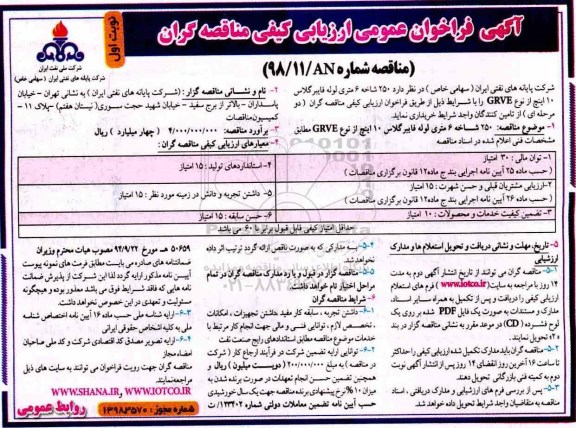 آگهی فراخوان عمومی ارزیابی کیفی مناقصه گران
نوبت اول
(مناقصه شماره ۹۸/۱۱/AN)
شرکت ملی نفت ایران
شرکت پایانه های نفتی ایران (سهامی خاص)
شرکت پایانه های نفتی ایران (سهامی خاص) در نظر دارد ۲۵۰ شاخه ۶ متری لوله فایبرگلاس
۱۰ اینچ از نوع GRVE را با شرایط ذیل از طریق فراخوان ارزیابی کیفی مناقصه گران (دو
مرحله ای) از تامین کنندگان واجد شرایط خریداری نماید
۱- موضوع مناقصه: ۲۵۰ شاخه ۶ متری لوله فایبرگلاس ۱۰ اینچ از نوع GRVE مطابق
مشخصات فنی اعلام شده در اسناد مناقصه
۲- نام و نشانی مناقصه گزار: (شرکت پایانه های نفتی ایران) به نشانی تهران - خیابان
پاسداران - بالاتر از برج سفید - خیابان شهید حجت سوری (نیستان هفتم) - پلاک ۱۱ -
کمیسیون مناقصات
۳- برآورد مناقصه: ۴/۰۰۰/۰۰۰/۰۰۰ (چهار میلیارد) ریال
۴- معیارهای ارزیابی کیفی مناقصه گران:
۱- توان مالی: ۳۰ امتیاز
(حسب ماده ۲۵ آیین نامه اجرایی بند ج ماده۱۲ قانون برگزاری مناقصات)
۴- استانداردهای تولید: ۱۵ امتیاز
۲- ارزیابی مشتریان قبلی و حسن شهرت: ۱۵ امتیاز
(حسب ماده ۲۶ آیین نامه اجرایی بند ج ماده۱۲ قانون برگزاری مناقصات)
۵- داشتن تجربه و دانش در زمینه مورد نظر: ۱۵ امتیاز
۳- تضمین کیفیت خدمات و محصولات: ۱۰ امتیاز
۶- حسن سابقه: ۱۵ امتیاز
حداقل امتیاز کیفی قابل قبول برابر با ۶۰ می باشد
۵- تاریخ، مهلت و نشانی دریافت و تحویل استعلام ها و مدارک
ارزشیابی
۵-۱- مناقصه گران می توانند از تاریخ انتشار آگهی دوم به مدت
۱۴ روز با مراجعه به سایت (www.iotco.ir) فرم های استعلام
ارزیابی کیفی را دریافت و پس از تکمیل به همراه سایر اسناد،
مدارک و مستندات به صورت یک فایل PDF شده بر روی یک
لوح فشرده (CD) در موعد مقرر به نشانی مناقصه گزار در بند
۲ تحویل نمایند.
۵-۲- مناقصه گران باید مدارک تکمیل شده ارزیابی کیفی را حداکثر
تا ساعت ۱۶ آخرین روز انقضای ۱۴ روز پس از انتشار آگهی نوبت
دوم به کمیته فنی بازرگانی تحویل دهند
۵-۳- پس از بررسی فرم های ارزشیابی و مدارک دریافتی، اسناد
مناقصه به متقاضیان واجد شرایط تحویل داده خواهد شد.
۵-۴- به مدارکی که به صورت ناقص ارائه گردد ترتیب اثر داده
نخواهد شد.
۵-۵- مناقصه گزار در قبول و یا رد مدارک مناقصه گران در تمام
مراحل اختیار تام خواهد داشت.
۶- شرایط مناقصه گران
۶-۱- داشتن تجربه، سابقه کار مفید داشتن تجهیزات، امکانات
، تخصص لازم، توانایی فنی و مالی جهت انجام کار مرتبط با
خدمات موضوع مناقصه مطابق استانداردهای رایج صنعت نفت
۶-۲- توانایی ارایه تضمین شرکت در فرآیند ارجاع کار (شرکت
در مناقصه) به مبلغ ۲۰۰/۰۰۰/۰۰۰ (دویست میلیون) ریال و
همچنین تضمین حسن انجام تعهدات در صورت برنده شدن به
میزان ۱۰% نرخ پیشنهادی برنده مناقصه جهت یک سال خورشیدی
حسب آیین نامه تضمین معاملات دولتی شماره ۱۲۳۴۰۲/ت
۵۰۶۵۹ هـ مورخ ۹۴/۹/۲۲ مصوب هیات محترم وزیران
ضمانتنامه های صادره می بایست مطابق فرمت های نمونه پیوست
آیین نامه مذکور ارایه گردد لذا این شرکت از پذیرش ضمانت
نامه هایی که فاقد شرایط فوق می باشد معذور بوده و هیچگونه
مسئولیت و تعهدی در این خصوص نخواهد داشت.
۶-۳- ارایه شناسه ملی حسب ماده ۱۶ آیین نامه اختصاص شناسه
ملی به کلیه اشخاص حقوقی ایرانی
۶-۴- ارایه تصویر مصدق کد اقتصادی شرکت و کد ملی صاحبان
امضاء مجاز
مناقصه گران جهت رویت فراخوان می توانند به سایت های ذیل
مراجعه نمایند.
WWW.IOTCO.IR و WWW.SHANA.IR
شماره مجوز: ۱۳۹۸۳۵۷۰
روابط عمومی